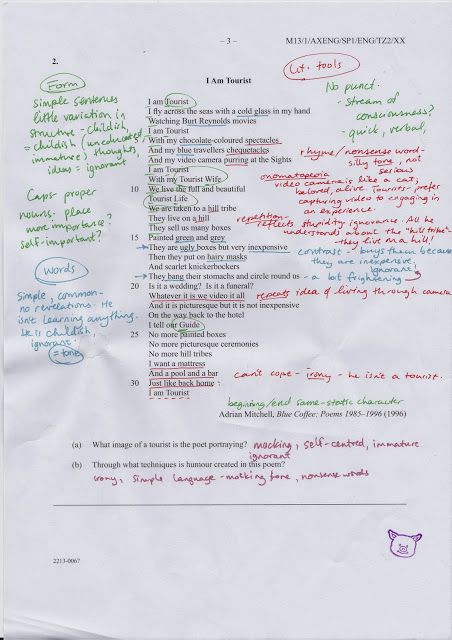 – 3 –
M13/1/AXENG/SP1/ENG/TZ2/XX
2.
I Am Tourist
I am Tourist
I fly across the seas with a cold glass in my hand
Watching Burt Reynolds movies
I am Tourist
5 With my chocolate-coloured spectacles
And my blue travellers chequetacles
And my video camera purring at the Sights
I am Tourist
With my Tourist Wife
10 We live the full and beautiful
Tourist Life
We are taken to a hill tribe
They live on a hill
They sell us many boxes
15 Painted green and grey
They are ugly boxes but very inexpensive
Then they put on hairy masks
And scarlet knickerbockers
They bang their stomachs and circle round us
20 Is it a wedding? Is it a funeral?
Whatever it is we video it all
And it is picturesque but it is not inexpensive
On the way back to the hotel
I tell our Guide
25 No more painted boxes
No more picturesque ceremonies
No more hill tribes
I want a mattress
And a pool and a bar
30 Just like back home
I am Tourist
Adrian Mitchell, Blue Coffee: Poems 1985–1996 (1996)
Form
Simple sentences
little variation in
structure - childish
= childish (uneducated,
immature) thoughts,
ideas = ignorant
Caps - proper
nouns. place
more importance?
self-important?
Words
Simple, common -
no revelations. He
isn't learning anything.
He is childish,
ignorant.
= tone
Lit. tools
No punct.
- stream of
consciousness?
- quick, verbal,
rhyme/nonsense word -
silly tone, not
serious
onomatopoeia
video camera is like a cat;
beloved, alive. Tourists - prefer
capturing video to engaging in
an experience.
repetition -
reflects stupidity ignorance. All he
understands about the "hill tribe" -
they live on a hill!
contrast - buys them because
they are inexpensive
ignorant
- a bit frightening
repeats idea of living through camera
can't cope - irony - he isn't a tourist.
beginning/end same - static character
(a) What image of a tourist is the poet portraying? mocking, self-centred, immature
ignorant
(b) Through what techniques is humour created in this poem?
irony, simple language - mocking tone, nonsense words
2213-0067